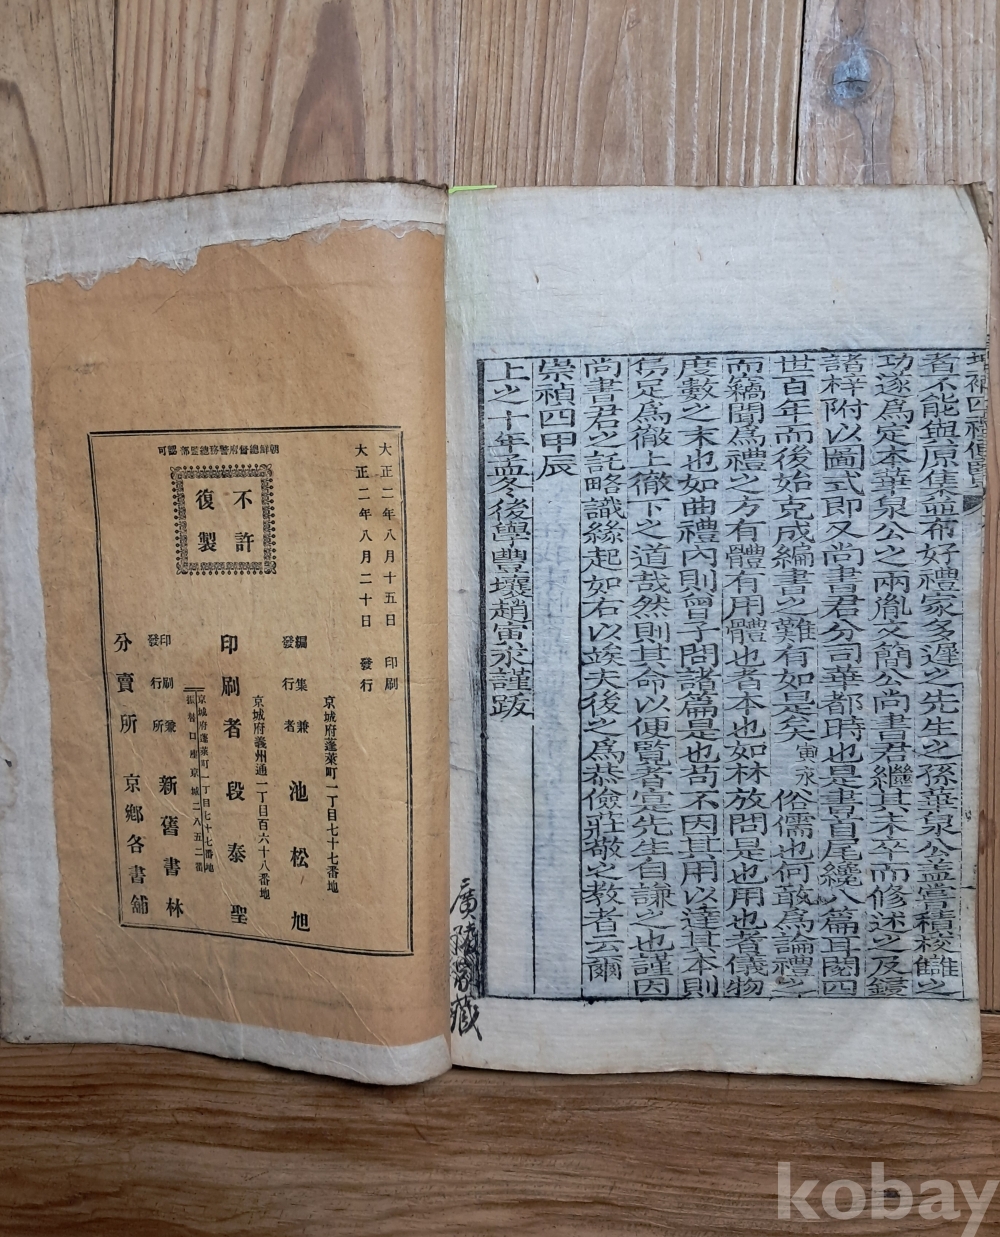 者不能與原集並布好禮家多遲之先生之孫華泉公盖嘗積校讎之
功遂爲定本華泉公之兩胤文簡公尚書君繼其未卒而修述之及鋟
諸梓附以圖式即又尚書君分司華都時也是書首尾纔八篇耳閱四
世百年而後始克成編書之難有如是矣寅永俗儒也何敢爲論禮之
而竊聞爲禮之方有體有用體也者本也如林放問是也用也者儀物
度數之末也如曲禮內則曾子問諸篇是也苟不因其用以達其本則
烏足爲徹上徹下之道哉然則其命以便覽者宣先生自謙之也謹因
尚書君之託略識緣起如右以竢夫後之爲恭儉莊敬之教者云爾
崇禎四甲辰
上之十年孟冬後學豐壤趙寅永謹跋
大正二年八月十五日 印刷
大正二年八月二十日 發行
朝鮮總督府警務總監部 認可
不許
復製
京城府蓬萊町一丁目七十七番地
編集兼
發行者 池松旭
京城府義州通一丁目百六十八番地
印刷者 段泰聖
京城府蓬萊町一丁目七十七番地
振替口座京城二八五二番
印刷兼
發行所 新舊書林
分賣所 京鄉各書舖
kobay